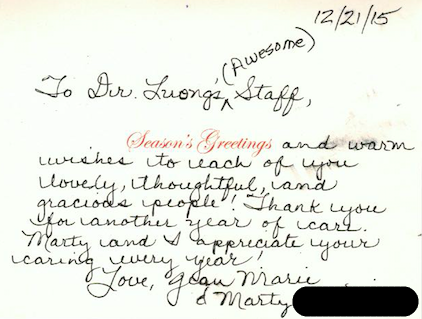 12/21/15
(Awesome)
To Dr. Luong's ^ Staff,
Season's Greetings and warm
wishes to each of you
lovely, thoughtful, and
gracious people! Thank you
for another year of care.
Marty and I appreciate your
caring every year!
Love, Jean Marie
& Marty